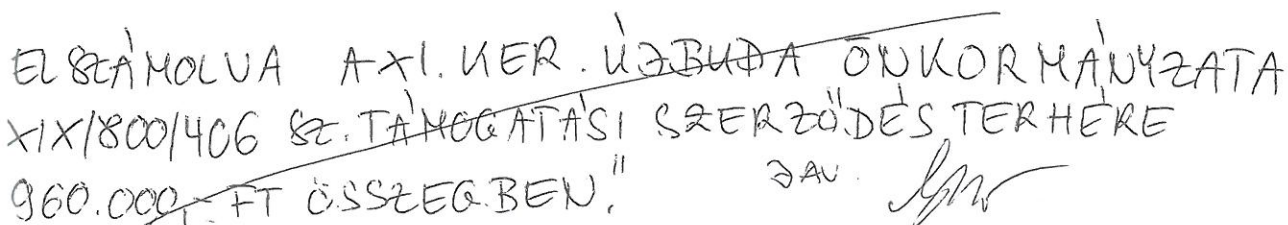 ELSZÁMOLVA A XI. KER. ÚJBUDA ÖNKORMÁNYZATA
XIX/800/406 SZ. TÁMOGATÁSI SZERZŐDÉS TERHÉRE
960.000,- FT ÖSSZEGBEN."
JAV.